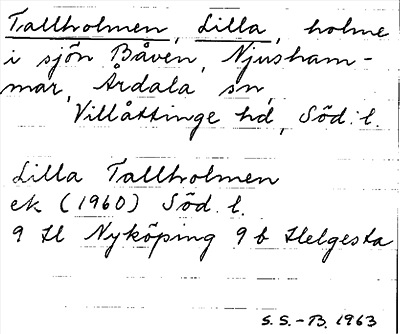 Tallholmen, Lilla, holme
i sjön Båven, Njusham-
mar, Årdala sn,
Villåttinge hd, Söd. l.
Lilla Tallholmen
ek (1960) Söd. l.
9 H Nyköping 9 b Helgesta
S.S.-B. 1963